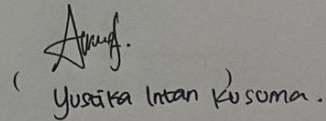 ( Yustika Intan Kusoma. )